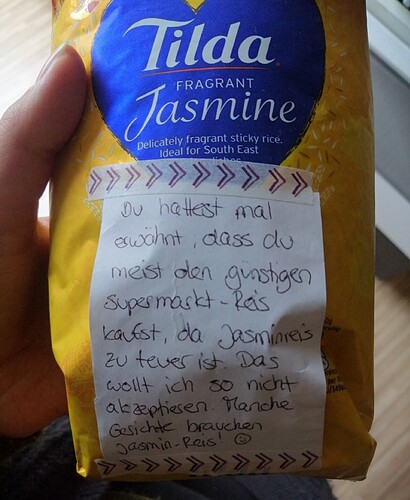 Tilda
FRAGRANT
Jasmine
Delicately fragrant sticky rice.
Ideal for South East
dishes
Du hattest mal
erwähnt, dass du
meist den günstigen
Supermarkt-Reis
kaufst, da Jasminreis
zu teuer ist. Das
wollt ich so nicht
akzeptieren. Manche
Gesichte brauchen
Jasmin-Reis! ☺